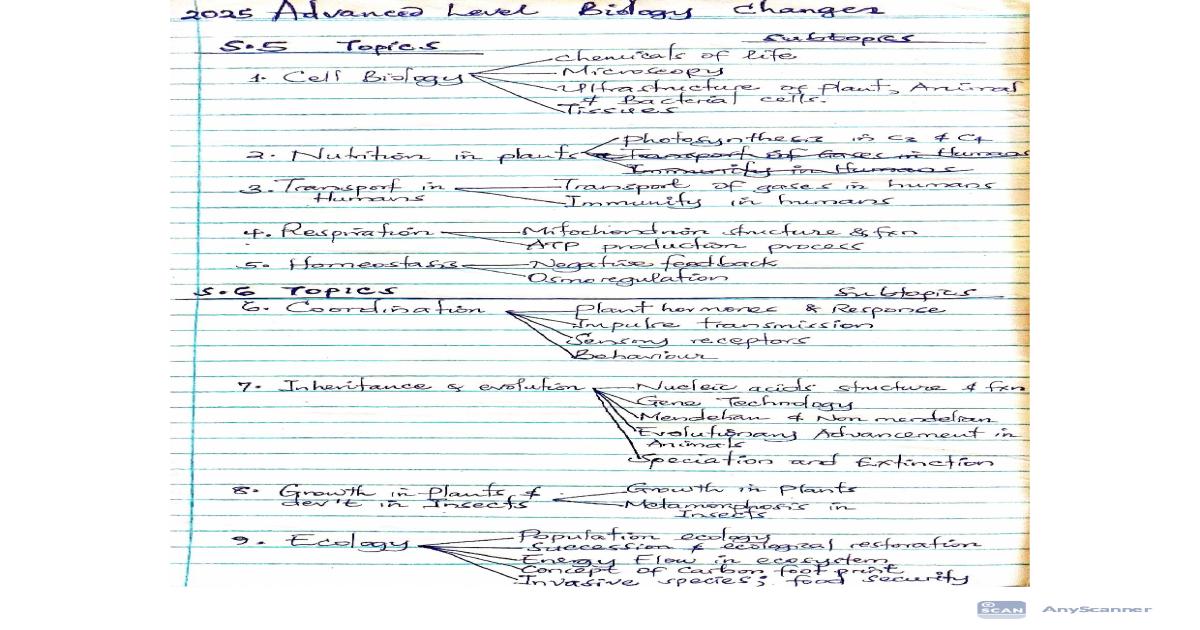 2025 Advanced Level Biology Changes
S.5 Topics Subtopics
1. Cell Biology
Chemicals of life
Microscopy
Ultrastructure of plant, Animal
& Bacterial cells.
Tissues
2. Nutrition in plants
Photosynthesis in C3 & C4
Transport of Gases in Humans
Immunity in Humans
3. Transport in
Humans
Transport of gases in humans
Immunity in humans
4. Respiration
Mitochondrion structure & fxn
ATP production process
5. Homeostasis
Negative feedback
Osmoregulation
S.6 Topics Subtopics
6. Coordination
Plant hormones & Response
Impulse transmission
Sensory receptors
Behaviour
7. Inheritance & evolution
Nucleic acids structure & fxn
Gene Technology
Mendelian & Non mendelian
Evolutionary Advancement in
Animals
Speciation and Extinction
8. Growth in Plants &
dev't in Insects
Growth in plants
Metamorphosis in
Insects
9. Ecology
Population ecology
Succession & ecological restoration
Energy Flow in ecosystem
Concept of Carbon foot print
Invasive species; food security
SCAN AnyScanner